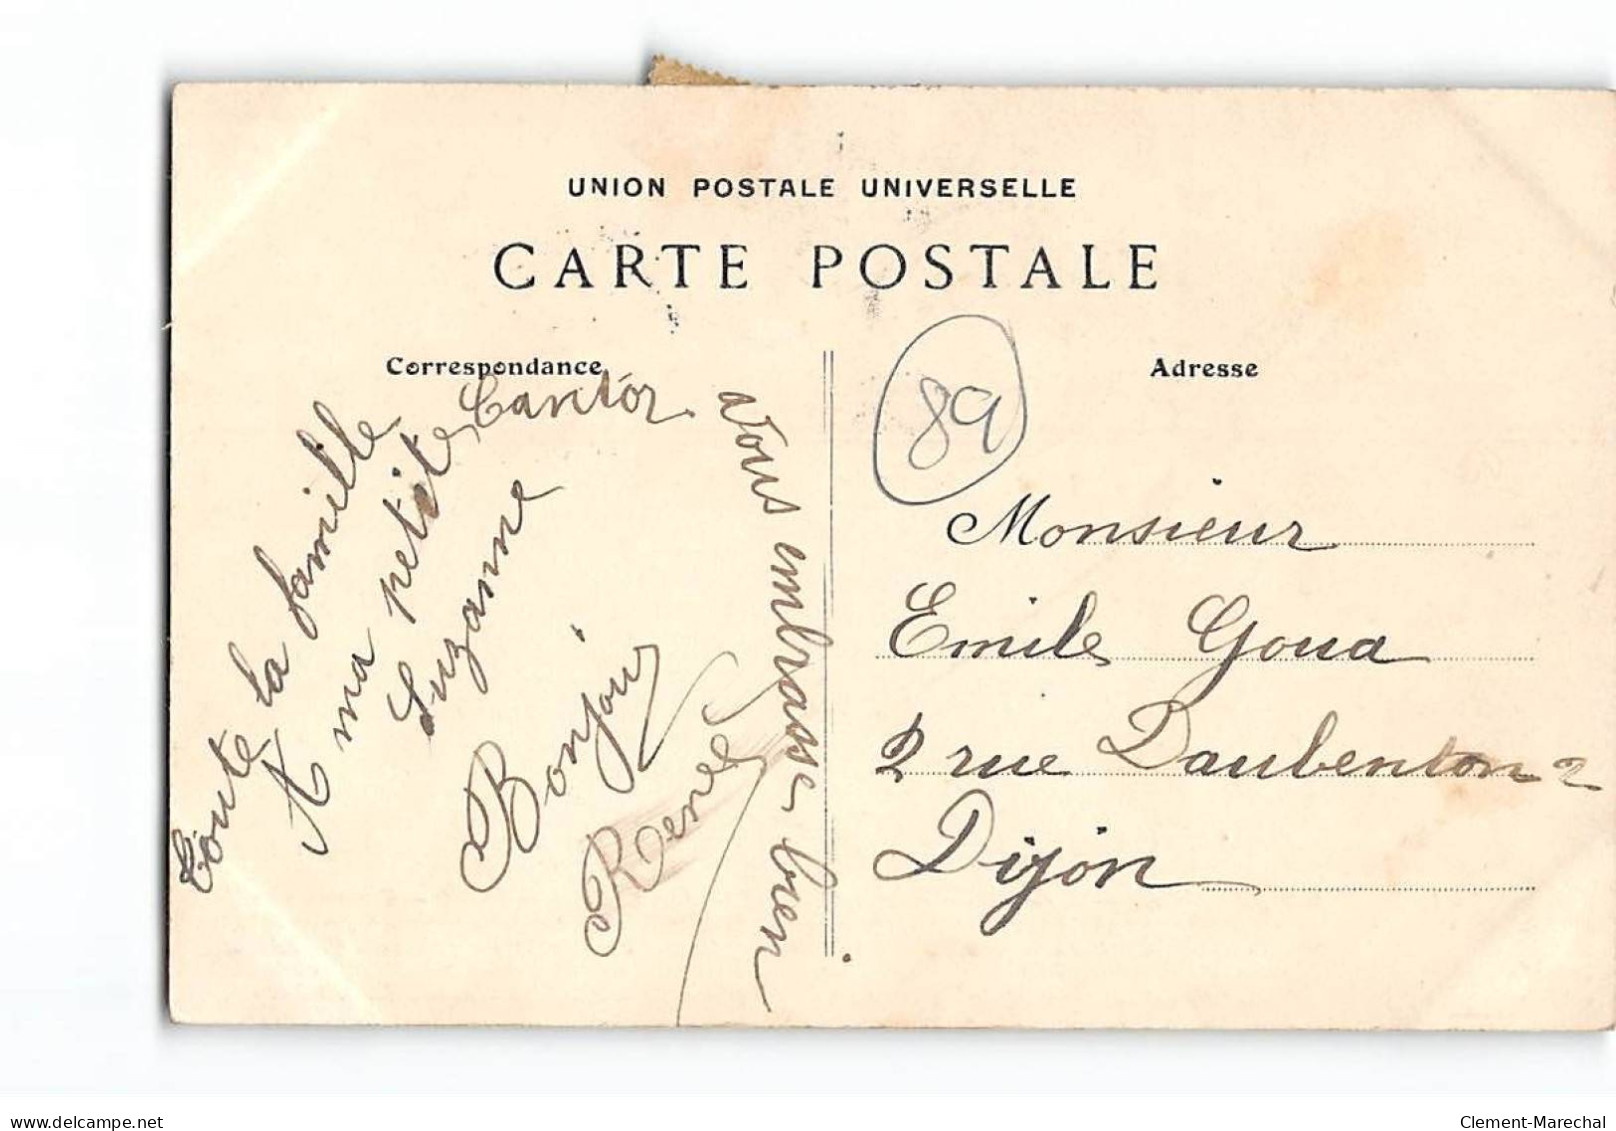 UNION POSTALE UNIVERSELLE
CARTE POSTALE
Correspondance
Adresse
89
Toute la famille
A ma petite
Suzanne
Bonjour
Renée
vous embrasse bien
Monsieur
Emile Goua
2 rue Daubenton 2
Dijon
www.delcampe.net
Clement-Marechal